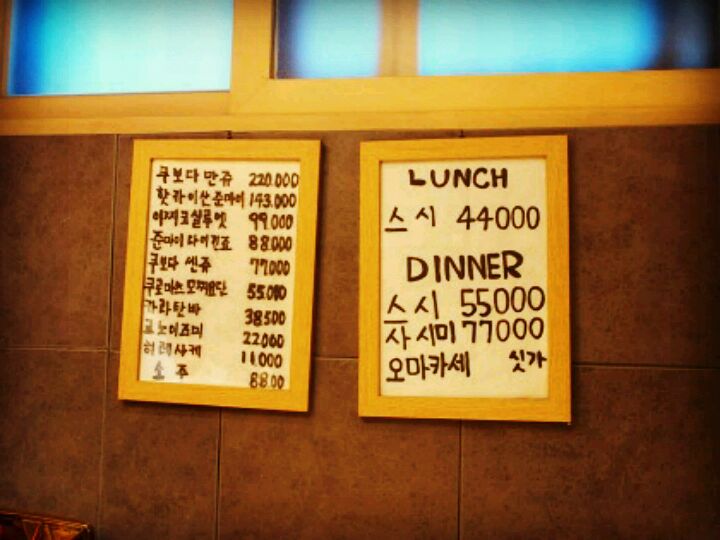 쿠보다 만쥬 220.000
핫카이산 준마이 143.000
이찌코 실루엣 99.000
준마이 다이긴죠 88.000
쿠보다 센쥬 77000
쿠로마츠 55.000
카라탄바 38500
코노이즈미 22.000
히레사케 11.000
소 주 8800
LUNCH
스시 44000
DINNER
스시 55000
사시미 77000
오마카세 싯가